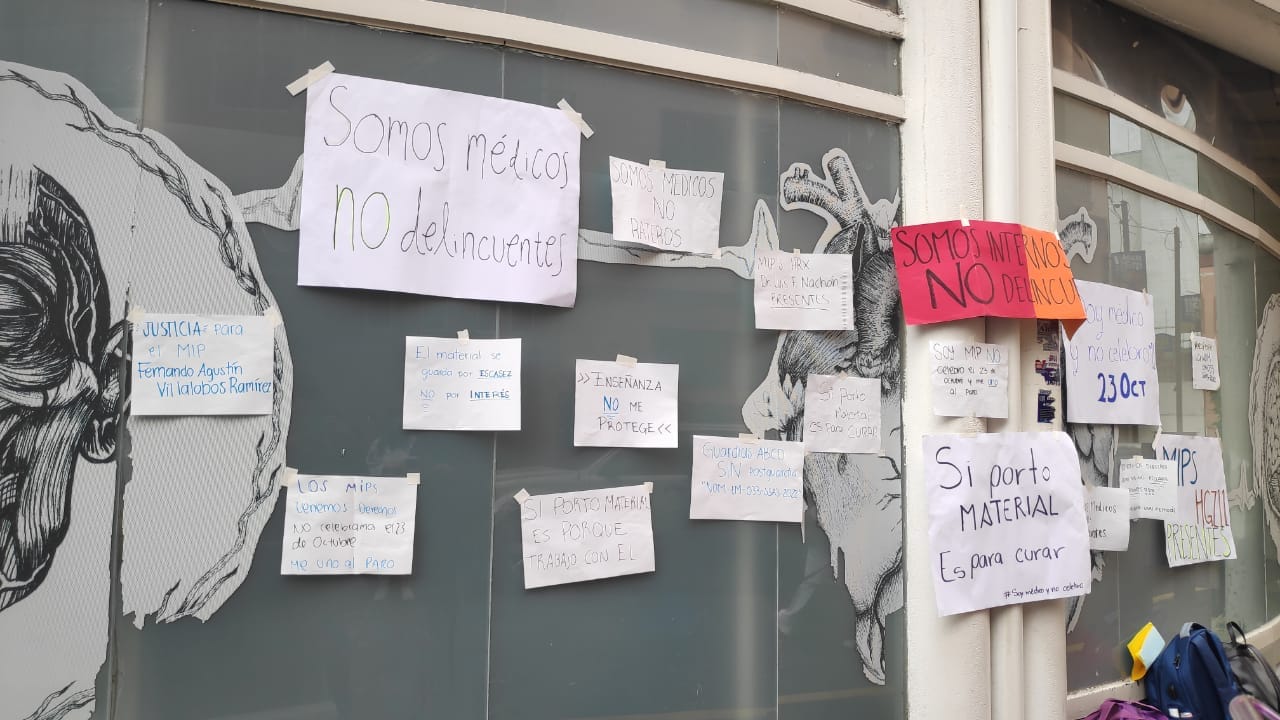 Somos médicos
no delincuentes
SOMOS MEDICOS
NO
RATEROS
MIP's HRX
De Luis F. Nachón
PRESENTES
SOMOS INTERNOS
NO DELINCU
JUSTICIA para
el MIP
Fernando Agustín
Villalobos Ramírez
El material se
guarda por ESCASEZ
NO por INTERÉS
>> ENSEÑANZA
NO ME
PROTEGE <<
Si porto
material
es para curar
SOY MIP NO
celebro el 23 de
octubre y me uno
al paro
Soy medico
y no celebro
23 Oct
LOS MIPs
tenemos Derechos
NO celebramos el 23
de Octubre
Me uno al PARO
SI PORTO MATERIAL
ES PORQUE
TRABAJO CON EL
Guardias ABCD
SIN Postguardia
Si porto
MATERIAL
Es para curar
#Soy médico y no celebro
Médicos
MIPs
HGZ11
PRESENTES